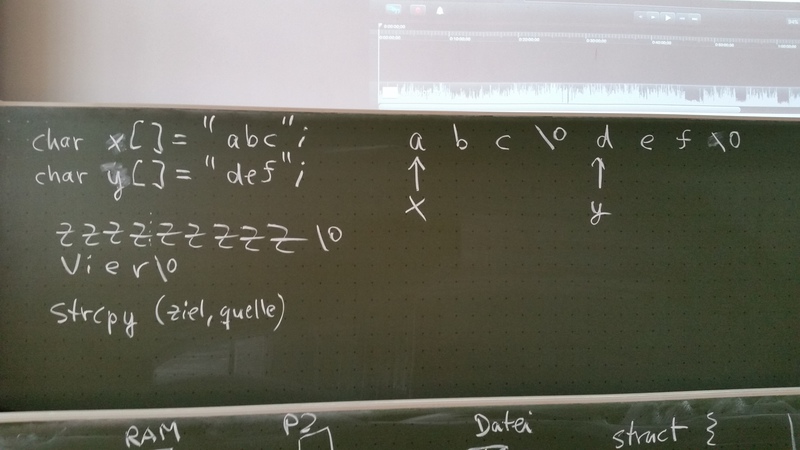 char x[] = "abc";
char y[] = "def";
a b c \0 d e f \0
x y
z z z z z z z z z \0
Vier\0
strcpy (ziel, quelle)
RAM P2 Datei struct {